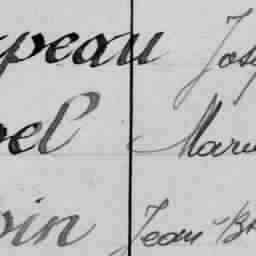 peau Jos
el Mari
in Jean-Ba